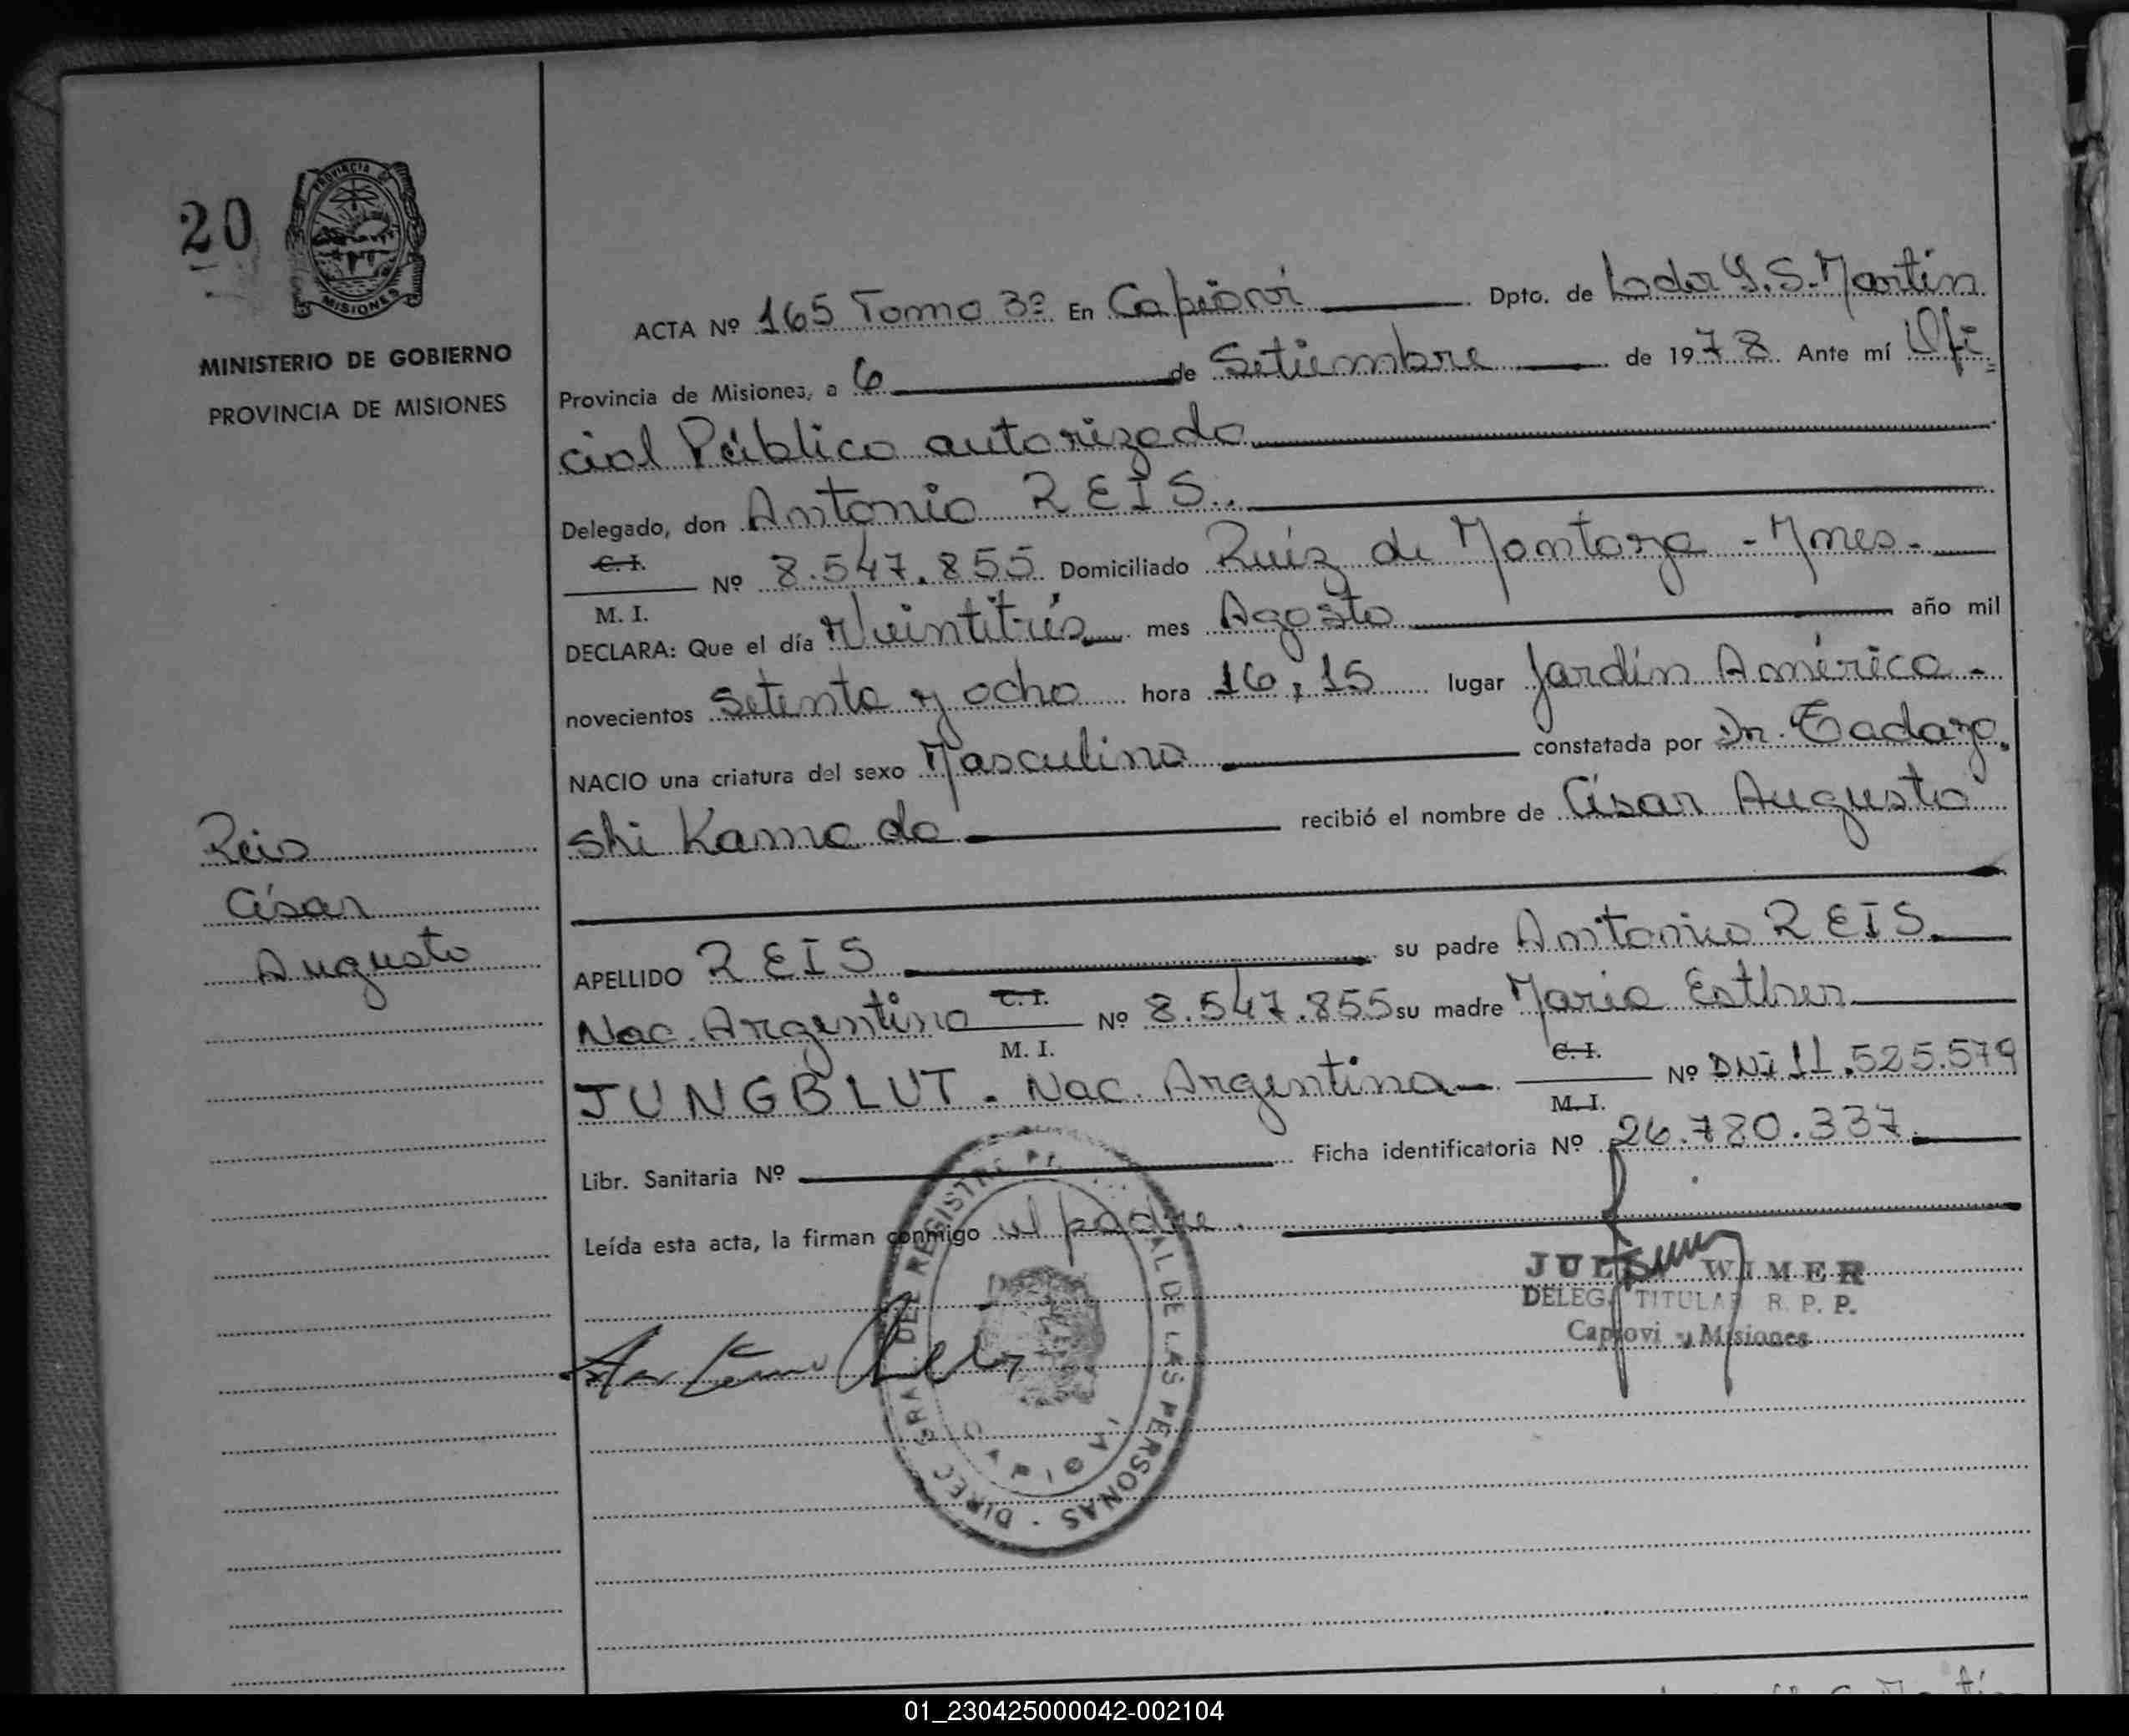 20
PROVINCIA DE
MISIONES
MINISTERIO DE GOBIERNO
PROVINCIA DE MISIONES
ACTA Nº 165 Tomo 3º En Capioví Dpto. de Lder G. S. Martín
Provincia de Misiones, a 6 de Setiembre de 1978 Ante mí Ofi=
cial Público autorizado
Delegado, don Antonio REIS.
C. I.
M. I. Nº 8.547.855 Domiciliado Ruíz de Montoya - Mnes.
DECLARA: Que el día Veintitrés mes Agosto año mil
novecientos Setenta y ocho hora 16,15 lugar Jardín América -
NACIO una criatura del sexo Masculino constatada por Dr. Tadayo
shi Kamada recibió el nombre de César Augusto
Reis
César
Augusto
APELLIDO REIS su padre Antonio REIS.
Nac. Argentino C. I. M. I. Nº 8.547.855 su madre María Esther
JUNGBLUT. Nac. Argentina C. I. M. I. Nº DNI 11.525.579
Libr. Sanitaria Nº Ficha identificatoria Nº 26.780.337.
Leída esta acta, la firman conmigo el padre.
WIMER
DELEG. TITULAR R. P. P.
Capiovi Misiones
Antonio Reis
DIREC GRAL DEL REGISTRO AL DE LAS PERSONAS
CAPIOVI
01_230425000042-002104